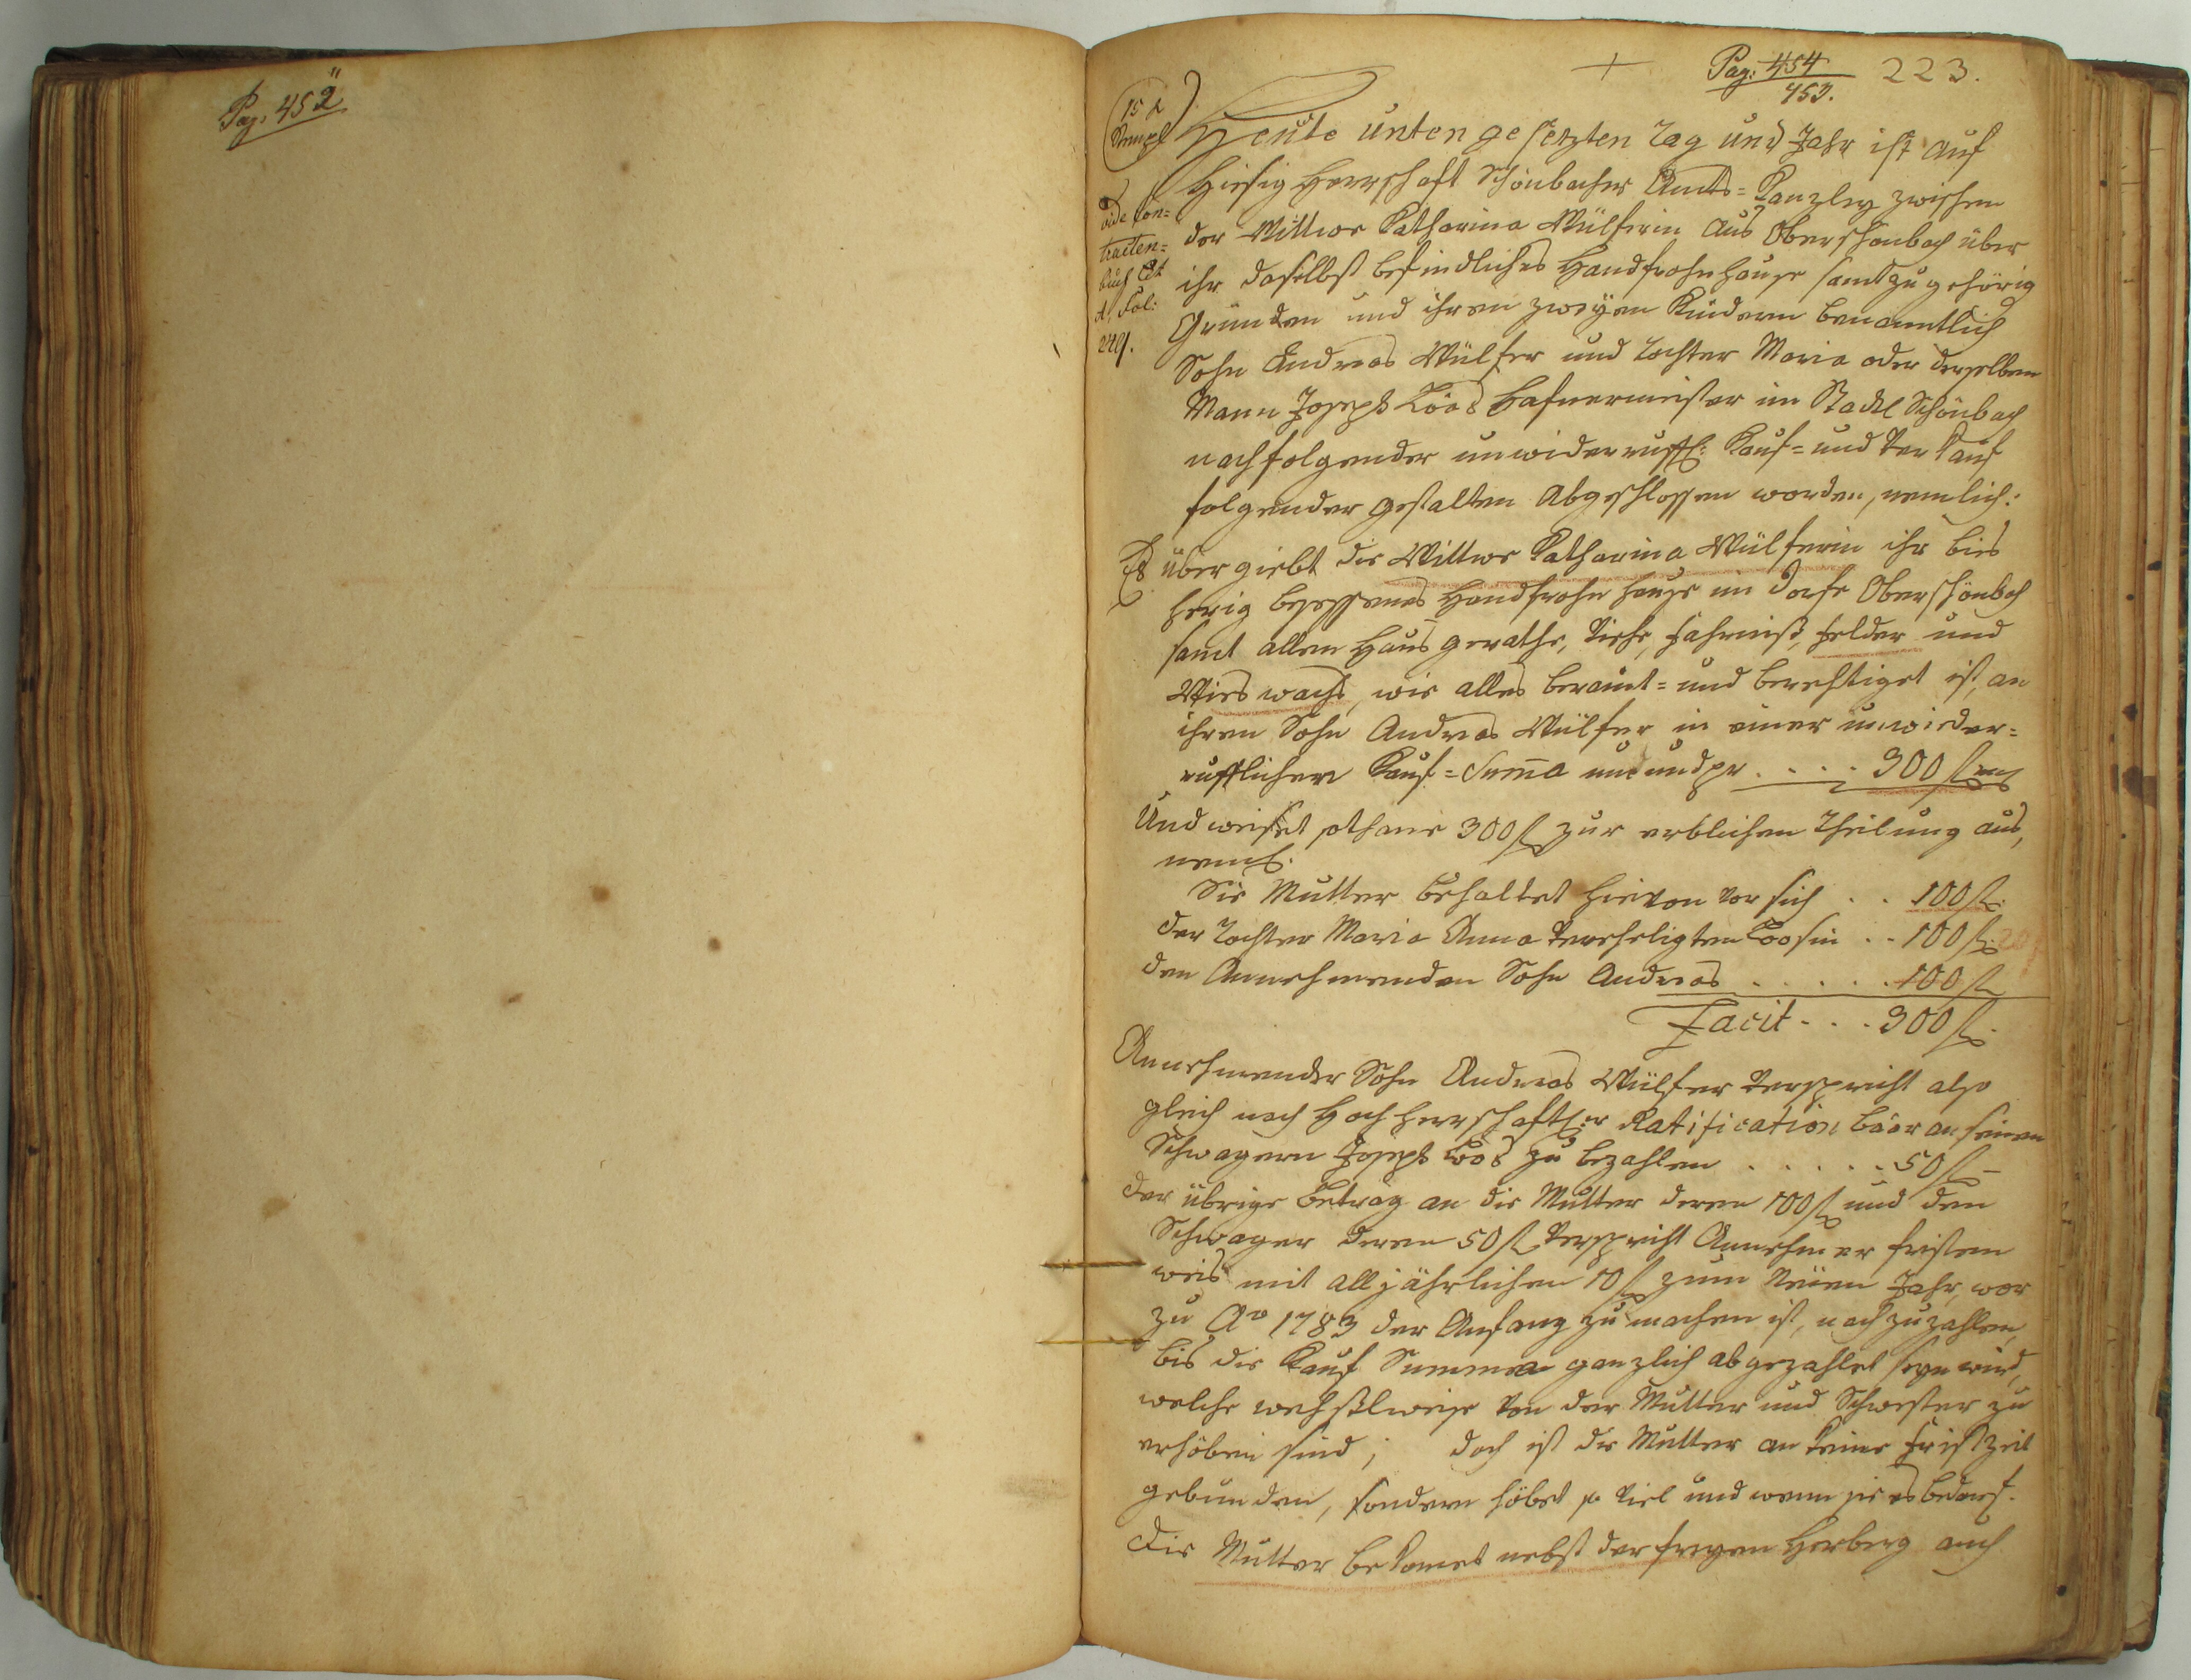 Pag. 452
Pag: 454
453.
223.
15 x
Stempl
vide Con=
tracten=
buch Lit
A, Fol:
Heute unten gesetzten Tag und Jahr ist auf
hiesig Herrschaft Schönbacher Amts=Kanzley zwischen
der Wittwe Katharina Wülferin aus Oberschönbach über
ihr daselbst befindliches Handfrohnhause samt zugehörig
Gründen und ihren zweyen Kindern benanntlich
Sohn Andreas Wülfer und Tochter Maria oder derselben
Mann Joseph Loos Hafnermeister im Stadtl Schönbach
nachfolgender unwiderruffl: Kauf= und Verkauf
folgender gestalten abgeschlossen worden, nemlich:
Es übergiebt die Wittwe Katharina Wülferin ihr bies
herig besessenes Handfrohn hause im Dorfe Oberschönbach
samt allem Hausgerathe, Viehe, Fahrniß, Felder und
Wieswachs, wie alles beraint= und berechtiget ist, an
ihren Sohn Andreas Wülfer in einer unwieder=
rufflichen Kauf=Summa um und pr . . . . 300 f
Und weiset sothane 300 f zur erblichen Theilung aus,
neml.
Die Mutter behaltet hievon vor sich . . 100 f.
der Tochter Maria Anna verehligten Loosin . . 100 f.
den Annehmenden Sohn Andreas . . . . . . 100 f
Facit . . . 300 f.
Annehmender Sohn Andreas Wülfer verspricht also
gleich nach Hochherrschaftl:er Ratification baar an seinen
Schwagern Joseph Loos zu bezahlen . . . . . . 50 f –
der übrige Betrag an die Mutter deren 100 f und den
Schwager deren 50 f verspricht Annehmer fristen
weis mit alljährlichen 10 f zum Neüen Jahr, wor
zu Ao 1783 der Anfang zu machen ist, nachzuzahlen,
bis die Kauf Summa ganzlich abgezahlet seyn wird,
welche wechslweise von der Mutter und Schwester zu
erhöben sind; doch ist die Mutter an keine Fristzeit
gebunden, sondern höbet so viel und wenn sie es bedarf.
Die Mutter bekomet nebst der freyen Herberg auch